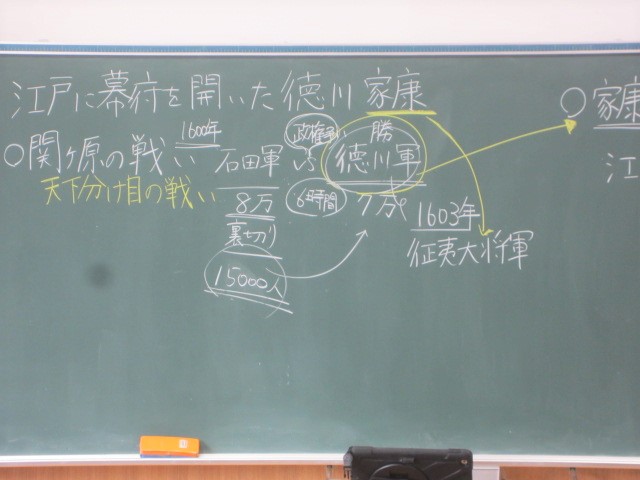 江戸に幕府を開いた徳川家康
○関ヶ原の戦い 1600年
天下分け目の戦い
石田軍
8万
裏切り
15000人
政権争い
VS
6時間
勝
徳川軍
7万
1603年
征夷大将軍
○家康
江